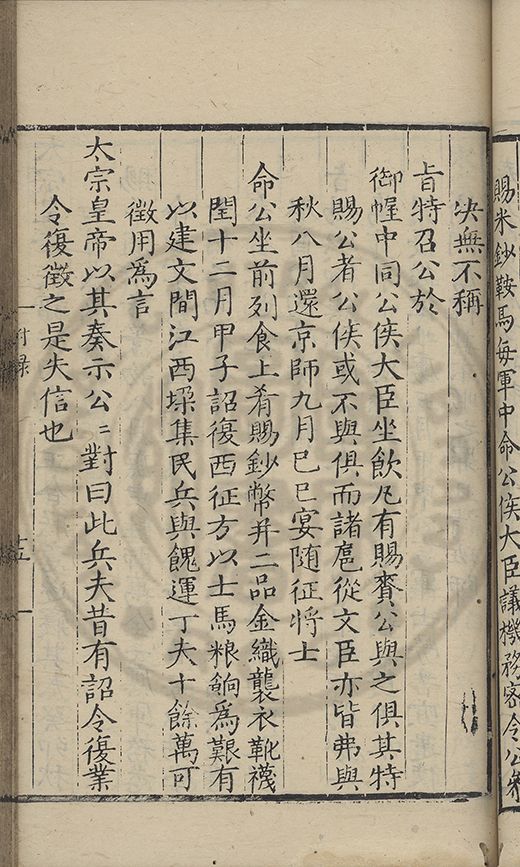 賜米鈔鞍馬每軍中命公侯大臣議機務密令公
決無不稱
旨特召公於
御幄中同公侯大臣坐飲凡有賜賚公與之俱其特
賜公者公侯或不與俱而諸扈從文臣亦皆弗與
秋八月還京師九月己巳宴随征將士
命公坐前列食上肴賜鈔幣并二品金織襲衣靴襪
閏十二月甲子詔復西征方以士馬粮餉為艱有
以建文間江西垜集民兵與餽運丁夫十餘萬可
徵用爲言
太宗皇帝以其奏示公〻對曰此兵夫昔有詔令復業
令復徵之是失信也
附録
十五